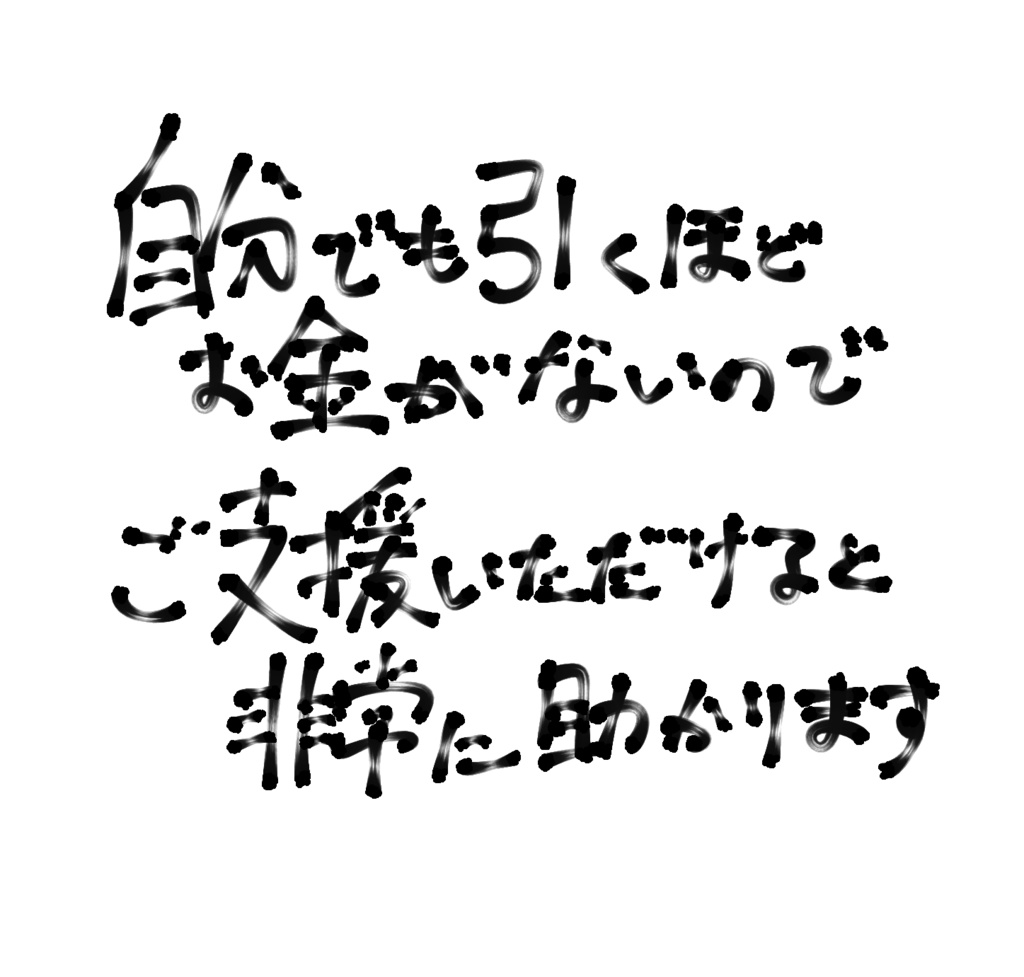 自分でも引くほど
お金がないので
ご支援いただけると
非常に助かります